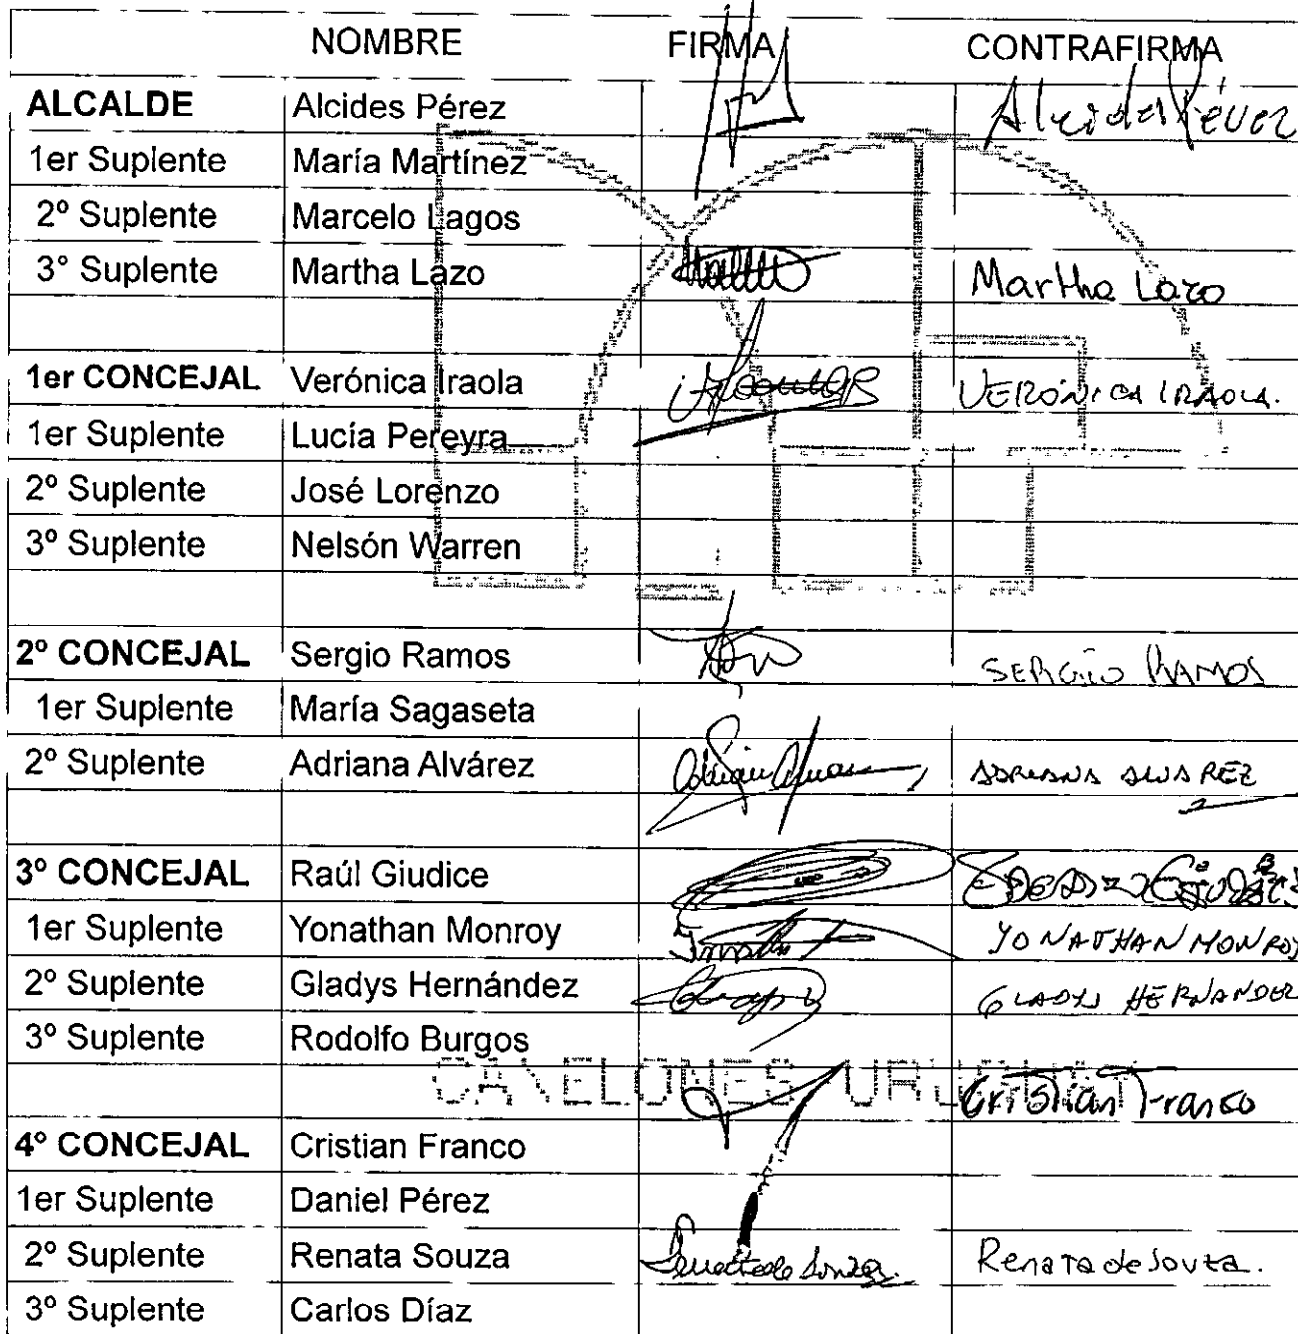 NOMBRE FIRMA CONTRAFIRMA
ALCALDE Alcides Pérez Alcides Pérez
1er Suplente María Martínez
2º Suplente Marcelo Lagos
3° Suplente Martha Lazo Martha Lazo
1er CONCEJAL Verónica Iraola VERÓNICA IRAOLA.
1er Suplente Lucía Pereyra
2º Suplente José Lorenzo
3º Suplente Nelsón Warren
2º CONCEJAL Sergio Ramos SERGIO RAMOS
1er Suplente María Sagaseta
2º Suplente Adriana Alvárez ADRIANA ALVAREZ
3º CONCEJAL Raúl Giudice
1er Suplente Yonathan Monroy YONATHAN MONROY
2º Suplente Gladys Hernández GLADYS HERNANDEZ
3º Suplente Rodolfo Burgos
CANELONES URUGUAY
Cristian Franco
4º CONCEJAL Cristian Franco
1er Suplente Daniel Pérez
2º Suplente Renata Souza Renata de Souza.
3º Suplente Carlos Díaz